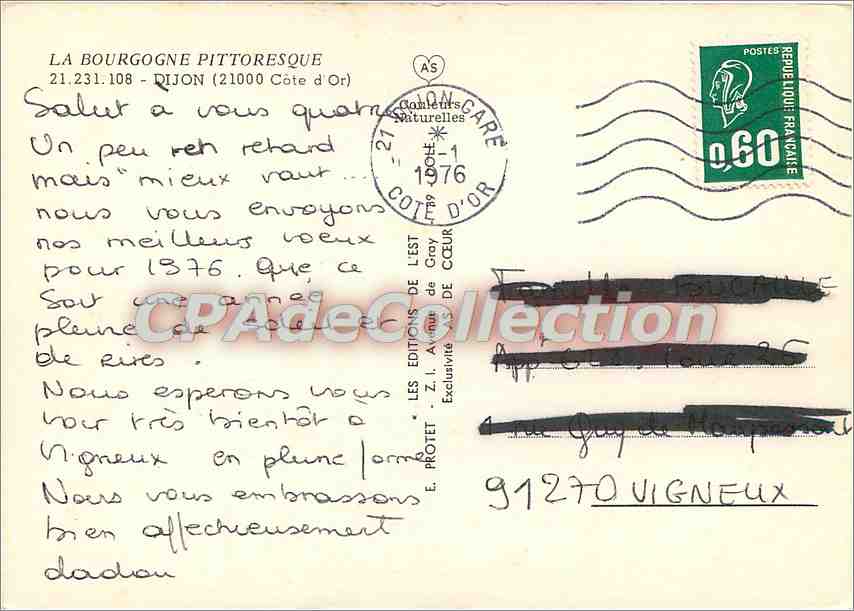 LA BOURGOGNE PITTORESQUE
21.231.108 - DIJON (21000 Côte d'Or)
Salut à vous quatre
Un peu en retard
mais "mieux vaut ...
nous vous envoyons
nos meilleurs voeux
pour 1976. Que ce
soit une année
pleine de soleil et
de rires.
Nous esperons vous
voir très bientôt à
Vigneux en pleine forme
Nous vous embrassons
bien affectueusement
dadou
AS
Couleurs
Naturelles
E. PROTET - Z.I. Avenue de Gray 39 DOLE
* LES EDITIONS DE L'EST
Exclusivité AS DE COEUR
21 DIJON GARE
1976
COTE D'OR
POSTES
REPUBLIQUE FRANÇAISE
0,60
1 rue Guy de Maupassant
91270 VIGNEUX
CPAdeCollection